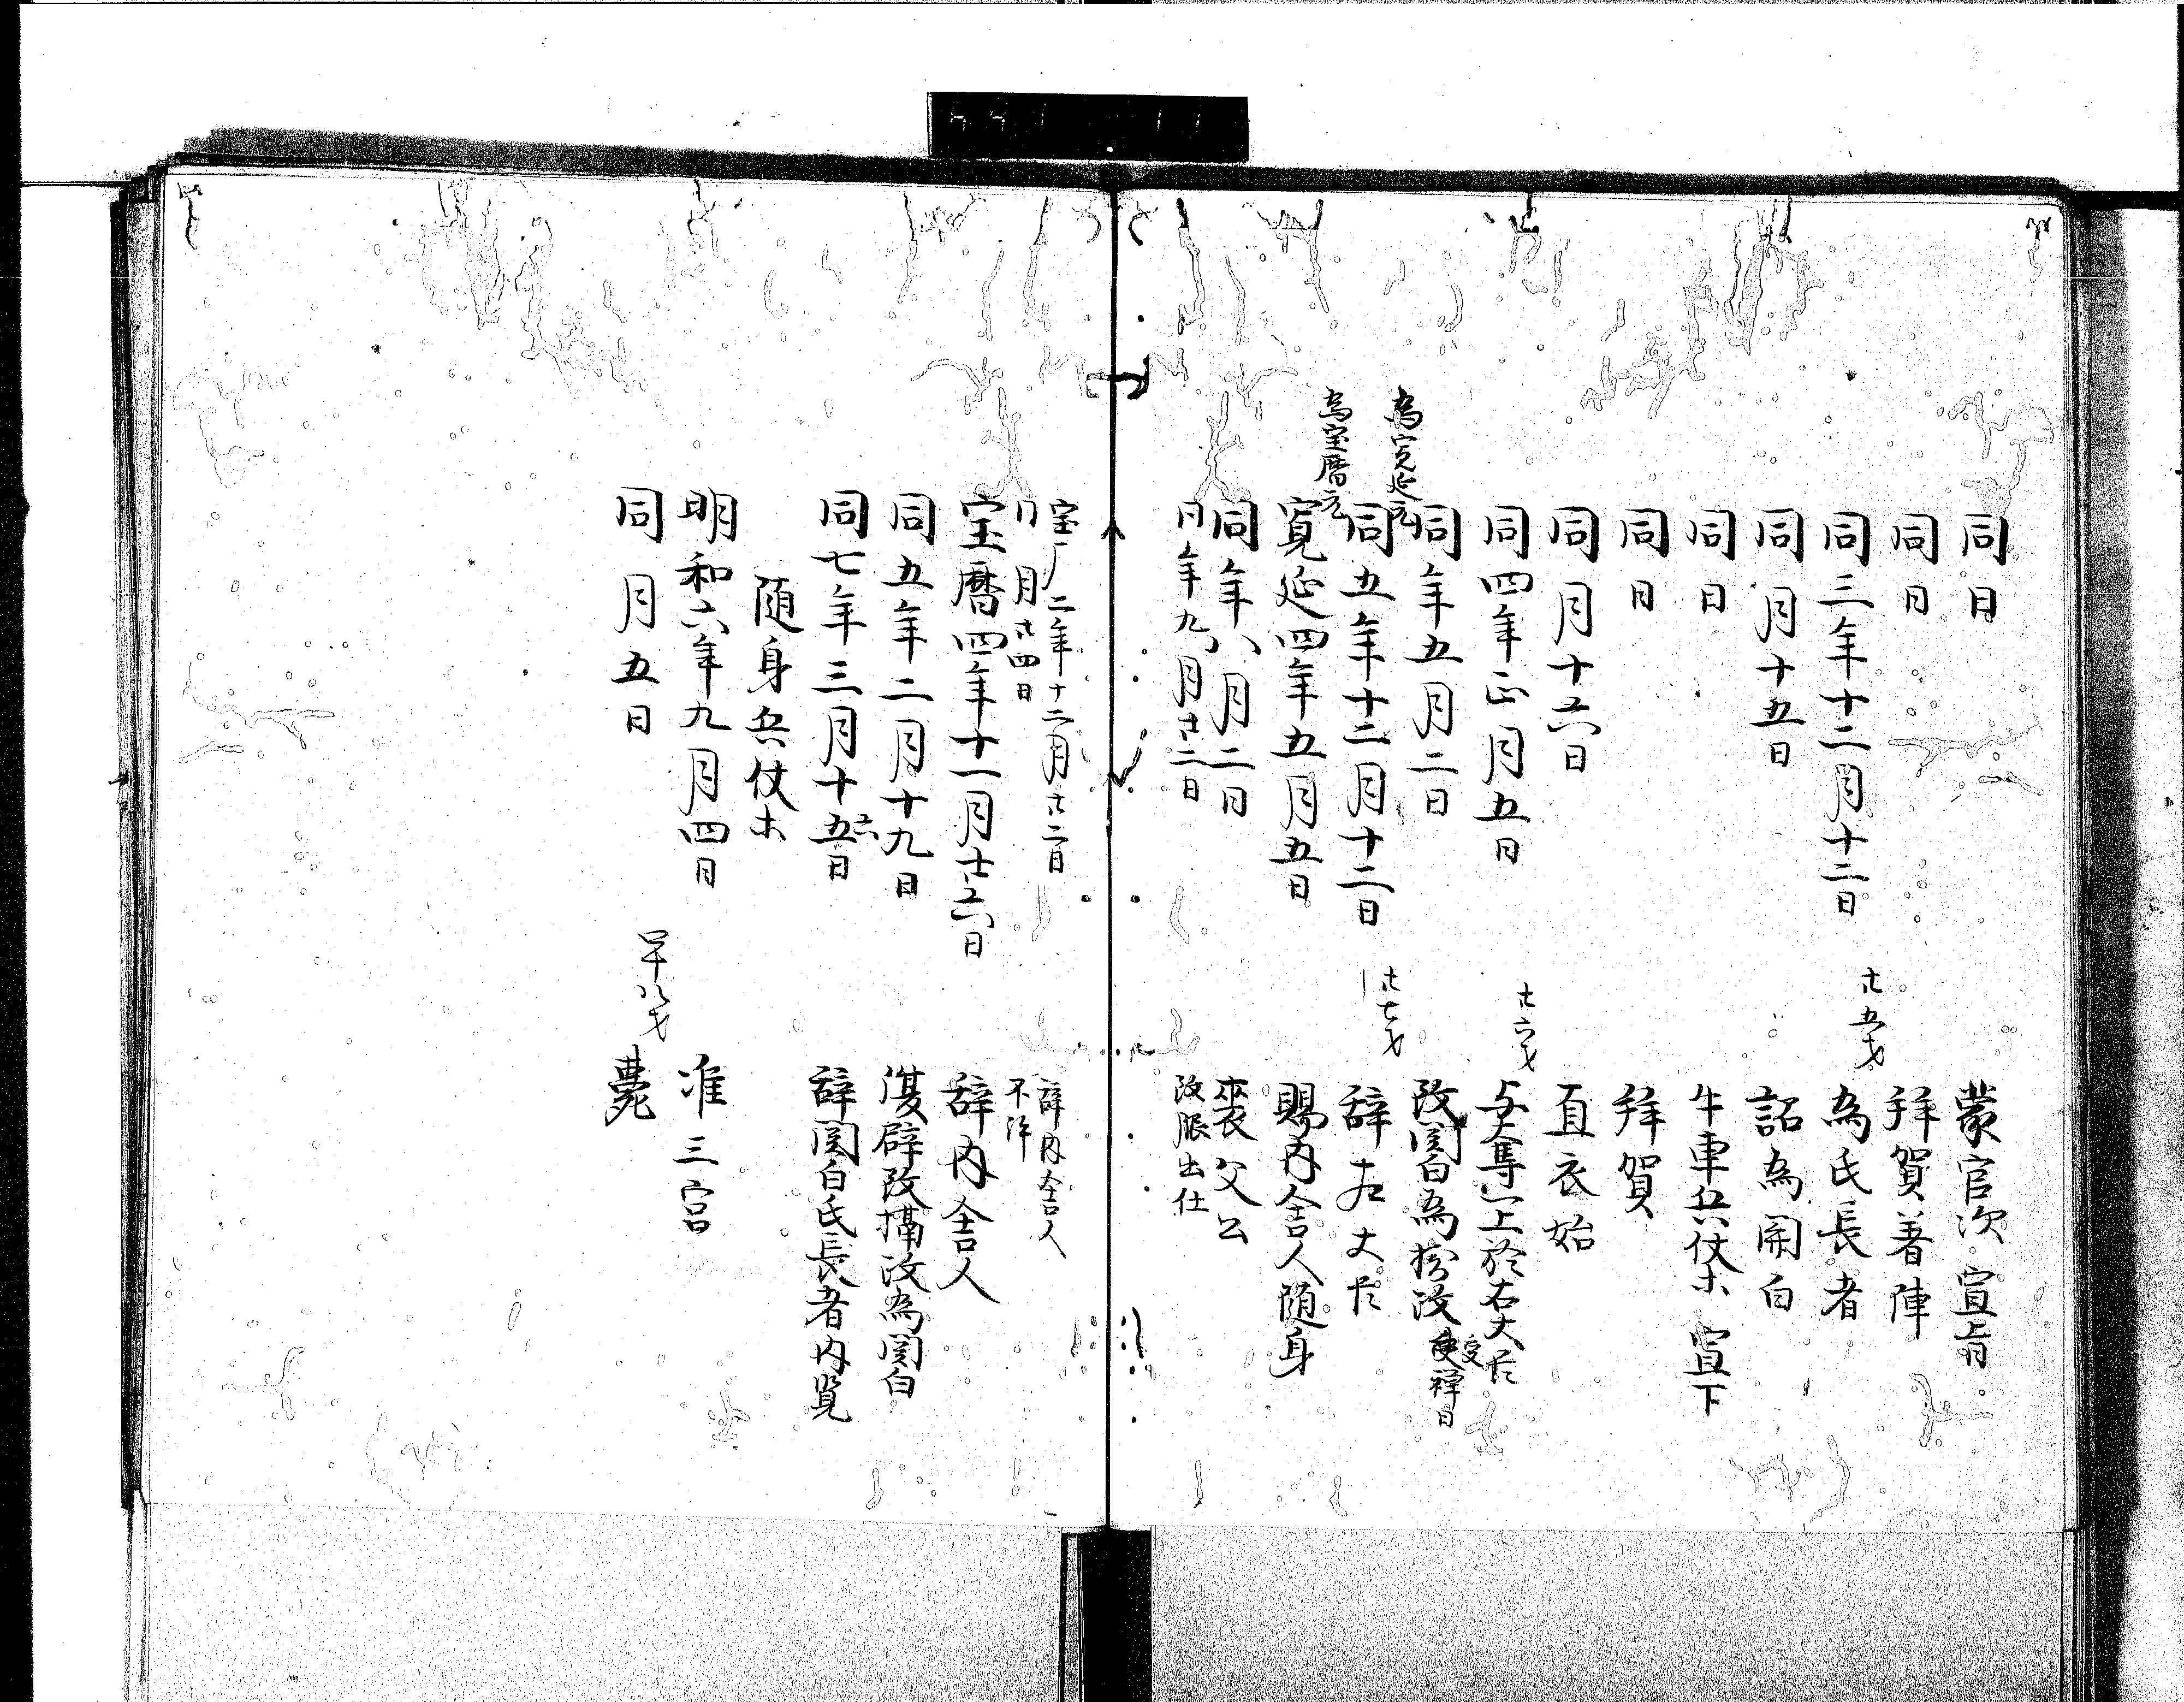 同日 蒙官次 宣旨
同日 拝賀著陣
同三年十二月十二日 廿五才 為氏長者
同月十五日 詔為関白
同日 牛車兵仗ホ 宣下
同日 拝賀
同月十六日 直衣始
同四年正月五日 廿六才 与奪一上於右大臣
同年五月二日 改関白為摂政 受禅日
為寛延元
同五年十二月十二日 廿七才 辞左大臣
為宝暦元
寛延四年五月五日 賜内舎人随身
同年八月二日 喪父公
同年九月廿二日 改服出仕
宝厂二年十二月廿二日 辞内舎人
同月廿四日 不許
宝暦四年十一月廿六日 辞内舎人
同五年二月十九日 復辟改摂政為関白
同七年三月十五日 六 辞関白氏長者内覧
随身兵仗ホ
明和六年九月四日 准三宮
同月五日 卌八才 薨